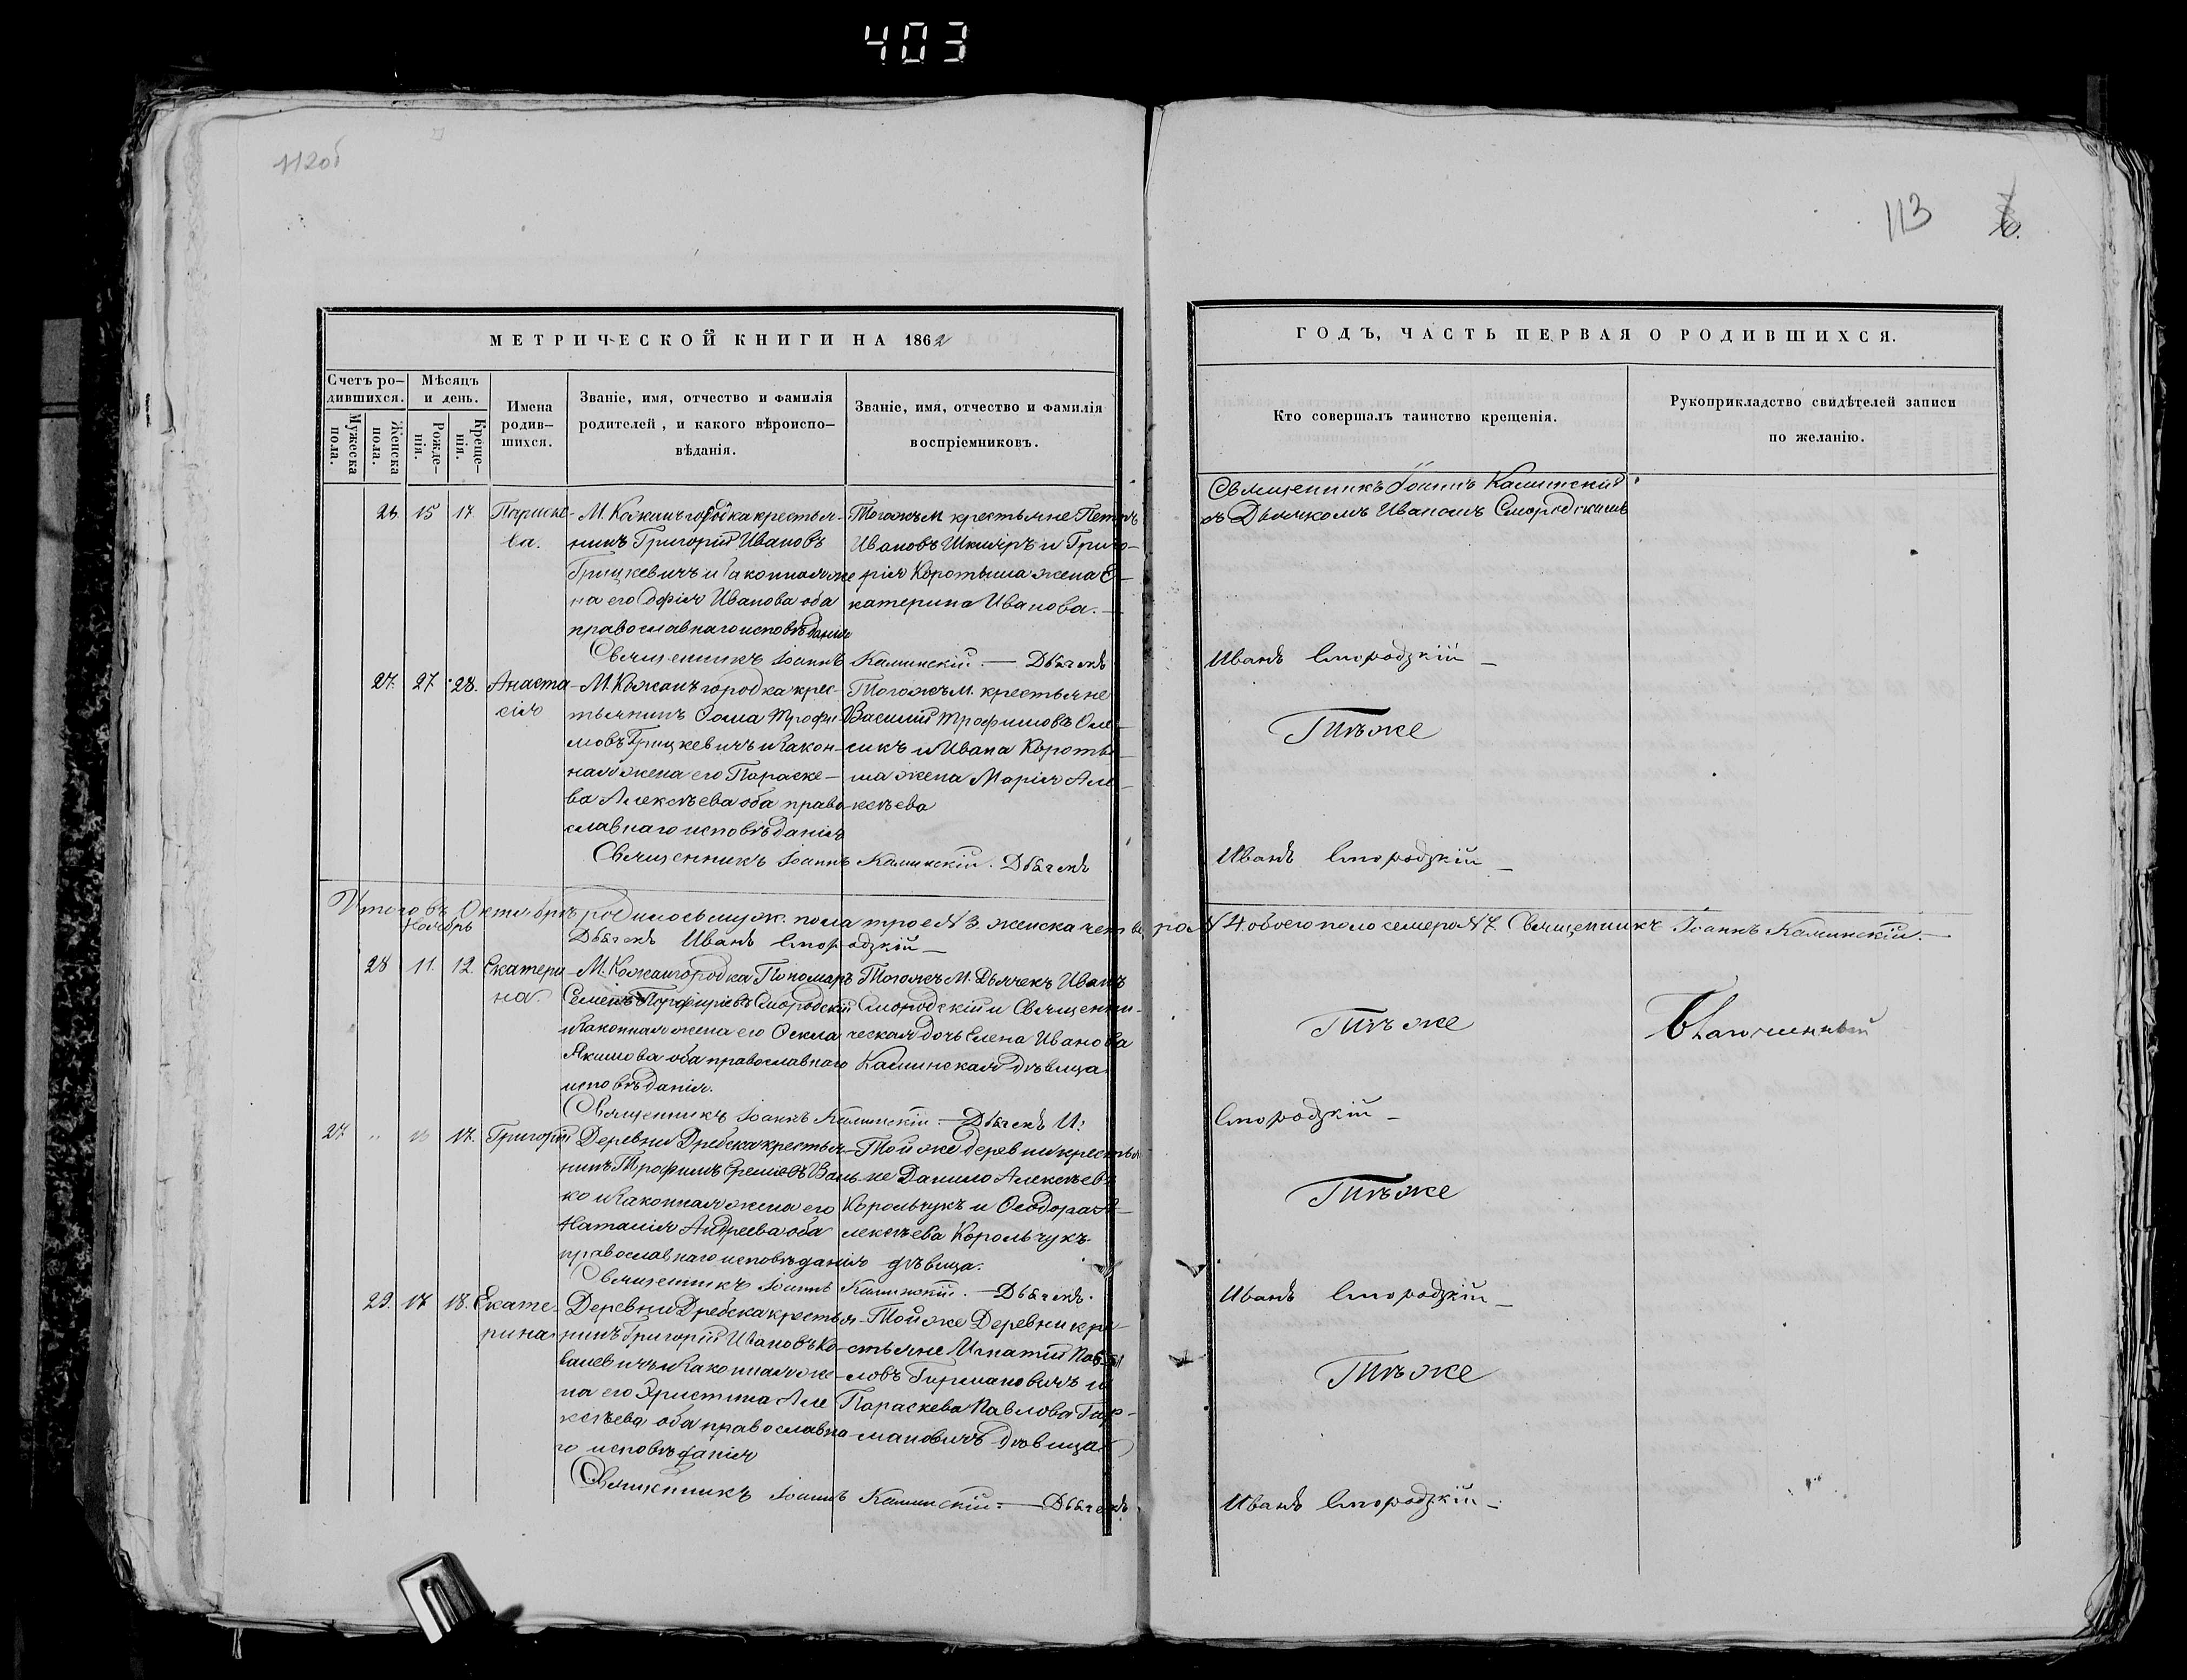 403
112об
113
МЕТРИЧЕСКОЙ КНИГИ НА 1862
ГОДЪ, ЧАСТЬ ПЕРВАЯ О РОДИВШИХСЯ.
Счетъ ро-
дившихся.
Мужеска
пола.
Женска
пола.
Мѣсяцъ
и день.
Рожде-
нія.
Креще-
нія.
Имена
родив-
шихся.
Званіе, имя, отчество и фамилія
родителей, и какого вѣроиспо-
вѣданія.
Званіе, имя, отчество и фамилія
воспріемниковъ.
Кто совершалъ таинство крещенія.
Рукоприкладство свидѣтелей записи
по желанію.
26. 15 17
Параске-
ва.
М. Кожангородка крестья-
нинъ Григорій Ивановъ
Грицкевичъ и законная же
на его Софія Иванова оба
православнаго исповѣданія
Тогожъ М. крестьяне Петръ
Ивановъ Шкляръ и Григо-
рія Коротыша жена Е-
катерина Иванова.
Священникъ Іоаннъ Каминскій
съ Дьячкомъ Иваномъ Смородскимъ
Священникъ Іоаннъ Каминскій. — Дьячекъ
Иванъ Смородзкій
27. 27 28.
Анаста
сія
М. Кожангородка крес-
тьянинъ Ѳома Трофи-
мовъ Грицкевичъ и закон-
ная жена его Параске-
ва Алексѣева оба право-
славнаго исповѣданія
Тогожъ М. крестьяне
Василій Трофимовъ Оле-
сикъ и Ивана Короты-
ша жена Марія Але-
ксѣева
Тѣже
Священникъ Іоаннъ Каминскій. Дьячекъ
Иванъ Смородзкій
Итого въ Октябрѣ родилось муж. пола трое N 3. женска четверо N 4. обоего пола семеро N 7. Священникъ Іоаннъ Каминскій.
Дьячекъ Иванъ Смородзкій
Ноябрь
28 11. 12.
Екатери
на.
М. Кожангородка Пономарь
Семенъ Порфиріевъ Смородскій
и законная жена его Ѳекла
Якимова оба православнаго
исповѣданія.
Тогожъ М. Дьячекъ Иванъ
Смородскій и Священни-
ческая дочь Елена Иванова
Каминская дѣвица.
Тѣже
Священникъ Іоаннъ Каминскій — Дьячекъ И.
Смородзкій
27 17.
Григорій
Деревни Дребска крестья-
нинъ Трофимъ Еремѣевъ Вань-
ко и законная жена его
Наталія Андреева оба
православнаго исповѣданія
Той же деревни крестья
не Данило Алексѣевъ
Корольчукъ и Ѳеодора А-
лексѣева Корольчукъ
дѣвица.
Тѣже
Священникъ Іоаннъ Каминскій. — Дьячекъ
Иванъ Смородзкій
29. 17 18.
Екате-
рина
Деревни Дребска крестья-
нинъ Григорій Ивановъ Ко-
валевичъ и законная же-
на его Христина Але
ксѣева оба православна
го исповѣданія
Той же Деревни кре-
стьяне Игнатій Пав-
ловъ Гирмановичъ и
Параскева Павлова Гир-
мановичъ дѣвица
Тѣже
Священникъ Іоаннъ Каминскій. — Дьячекъ
Иванъ Смородзкій